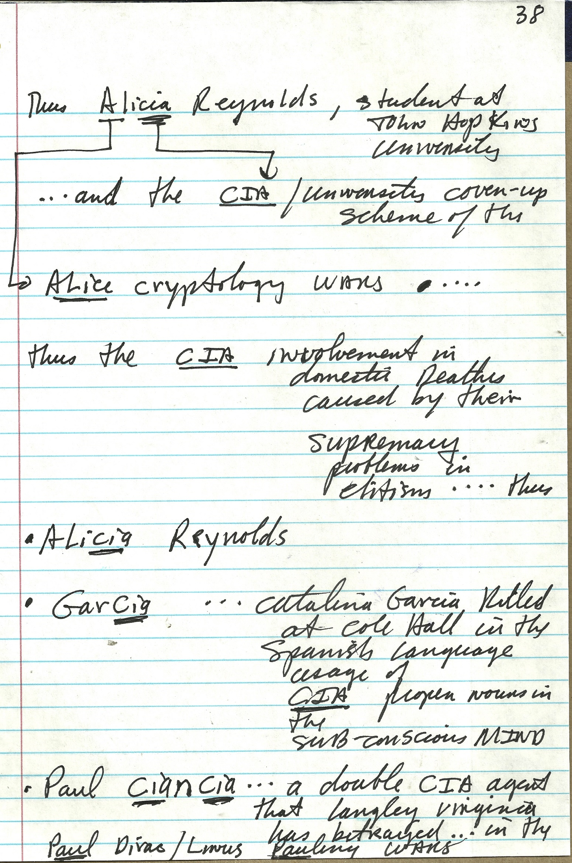 38
Thus Alicia Reynolds, student at
John Hopkins
University
...and the CIA / Universities cover-up
scheme of the
ALice cryptology WARS .....
thus the CIA involvement in
domestic Deaths
caused by their
supremacy
problems in
elitism .... thus
• ALicia Reynolds
• Garcia ... Catalina Garcia killed
at Cole Hall in the
Spanish language
usage of
CIA proper nouns in
the
SUB-conscious MIND
• Paul Ciancia ... a double CIA agent
that Langley Virginia
has betrayed ... in the
Paul Dirac / Linus Pauling WARS